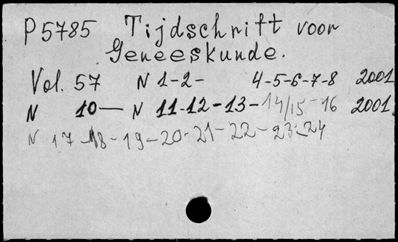 P5785 Tijdschrift voor
Geneeskunde.
Vol. 57 N 1-2- 4-5-6-7-8 2001
N 10- N 11-12-13-14/15-16 2001
N 17-18-19-20-21-22-23-24